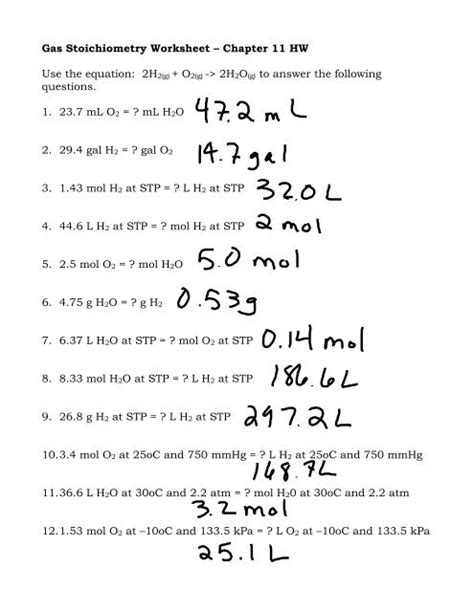 Gas Stoichiometry Worksheet – Chapter 11 HW
Use the equation: 2H₂(g) + O₂(g) -> 2H₂O(g) to answer the following
questions.
1. 23.7 mL O₂ = ? mL H₂O 47.2 mL
2. 29.4 gal H₂ = ? gal O₂ 14.7 gal
3. 1.43 mol H₂ at STP = ? L H₂ at STP 32.0 L
4. 44.6 L H₂ at STP = ? mol H₂ at STP 2 mol
5. 2.5 mol O₂ = ? mol H₂O 5.0 mol
6. 4.75 g H₂O = ? g H₂ 0.53g
7. 6.37 L H₂O at STP = ? mol O₂ at STP 0.14 mol
8. 8.33 mol H₂O at STP = ? L H₂ at STP 186.6L
9. 26.8 g H₂ at STP = ? L H₂ at STP 297.2L
10.3.4 mol O₂ at 25oC and 750 mmHg = ? L H₂ at 25oC and 750 mmHg
168.7L
11.36.6 L H₂O at 30oC and 2.2 atm = ? mol H₂0 at 30oC and 2.2 atm
3.2 mol
12.1.53 mol O₂ at –10oC and 133.5 kPa = ? L O₂ at –10oC and 133.5 kPa
25.1 L